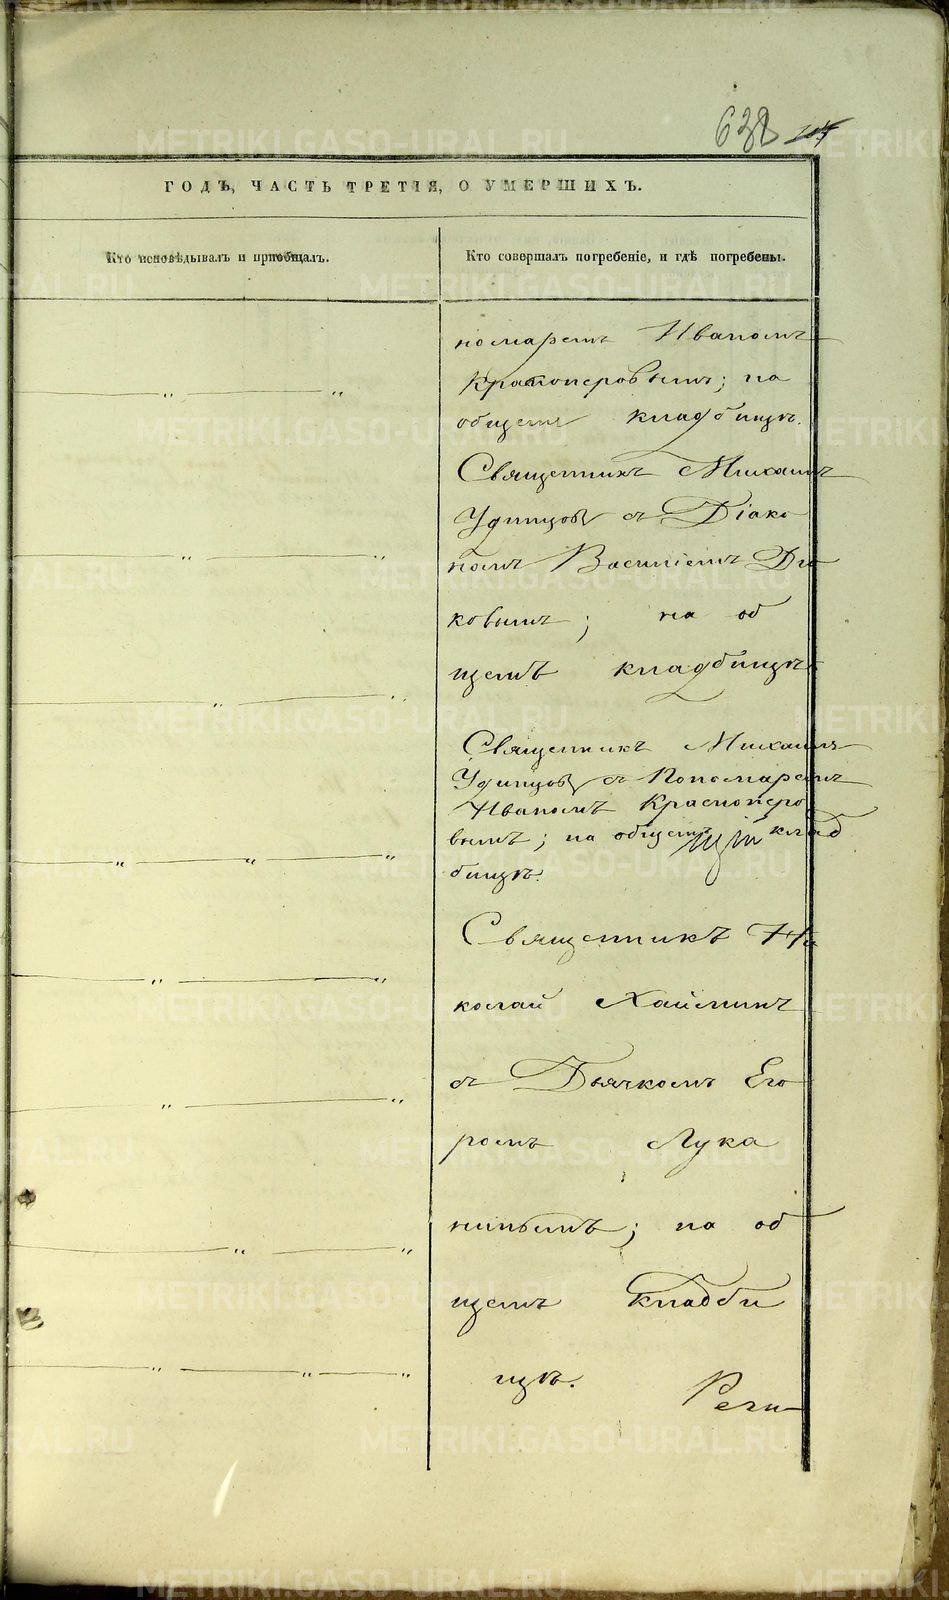 638
ГОДЪ, ЧАСТЬ ТРЕТІЯ, О УМЕРШИХЪ.
Кто исповѣдывалъ и пріобщалъ.
Кто совершалъ погребеніе, и гдѣ погребены.
номаремъ Иваномъ
Красноперовымъ; на
общемъ кладбищѣ.
Священникъ Михаилъ
Удинцовъ съ Діако
номъ Василіемъ Дю
ковымъ; на об
щемъ кладбищѣ
Священникъ Михаилъ
Удинцовъ съ Пономаремъ
Иваномъ Красноперо
вымъ; на общемъ клад
бищѣ.
Священникъ Ни
колай Хайминъ
съ Дьячкомъ Его
ромъ Лука
нинымъ; на об
щемъ кладби
щѣ.
METRIKI.GASO-URAL.RU